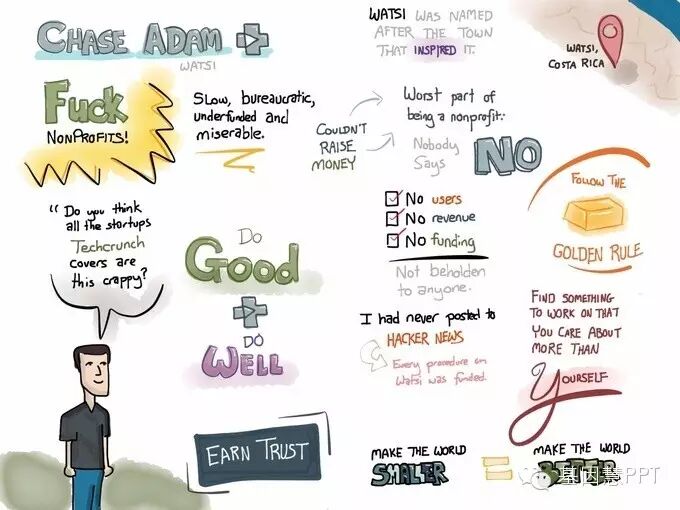 CHASE ADAM
WATSI
WATSI WAS NAMED
AFTER THE TOWN
THAT INSPIRED IT.
WATSI,
COSTA RICA
Fuck
NONPROFITS!
SLOW, bureaucratic,
underfunded and
miserable.
COULDN'T
RAISE
MONEY
Worst part of
being a nonprofit:
Nobody
Says
NO
No users
No revenue
No funding
Not beholden
to anyone.
FOLLOW THE
GOLDEN RULE
"Do you think
all the startups
Techcrunch
covers are
this crappy?
DO
Good
+
DO
WELL
I had never posted to
HACKER NEWS
Every procedure on
Watsi was funded.
FIND SOMETHING
TO WORK ON THAT
YOU CARE ABOUT
MORE THAN
YOURSELF
EARN TRUST
MAKE THE WORLD
SMALLER
=
MAKE THE WORLD
BETTER
基因慧PPT